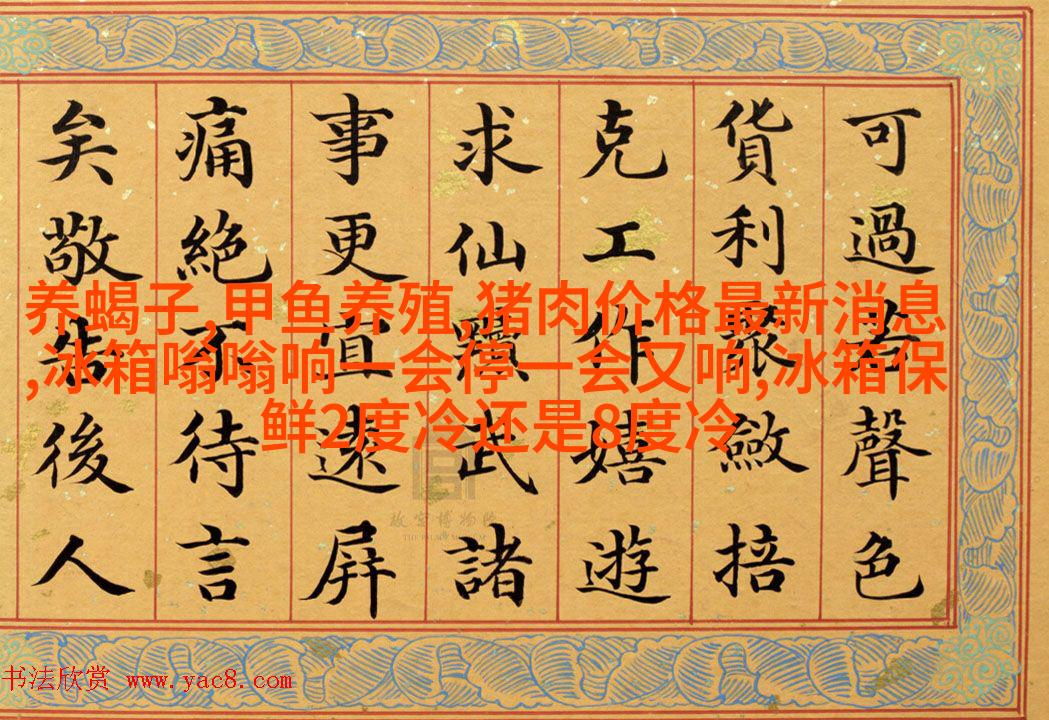 可過若聲色
貨利聚斂掊
克工作嬉遊
求仙黷武諸
事更宜遠屏
痛絕不待言
矣敬告後人
养蝎子,甲鱼养殖,猪肉价格最新消息
,冰箱嗡嗡响一会停一会又响,冰箱保
鲜2度冷还是8度冷
故宫博物院
书法欣赏 www.yac8.com